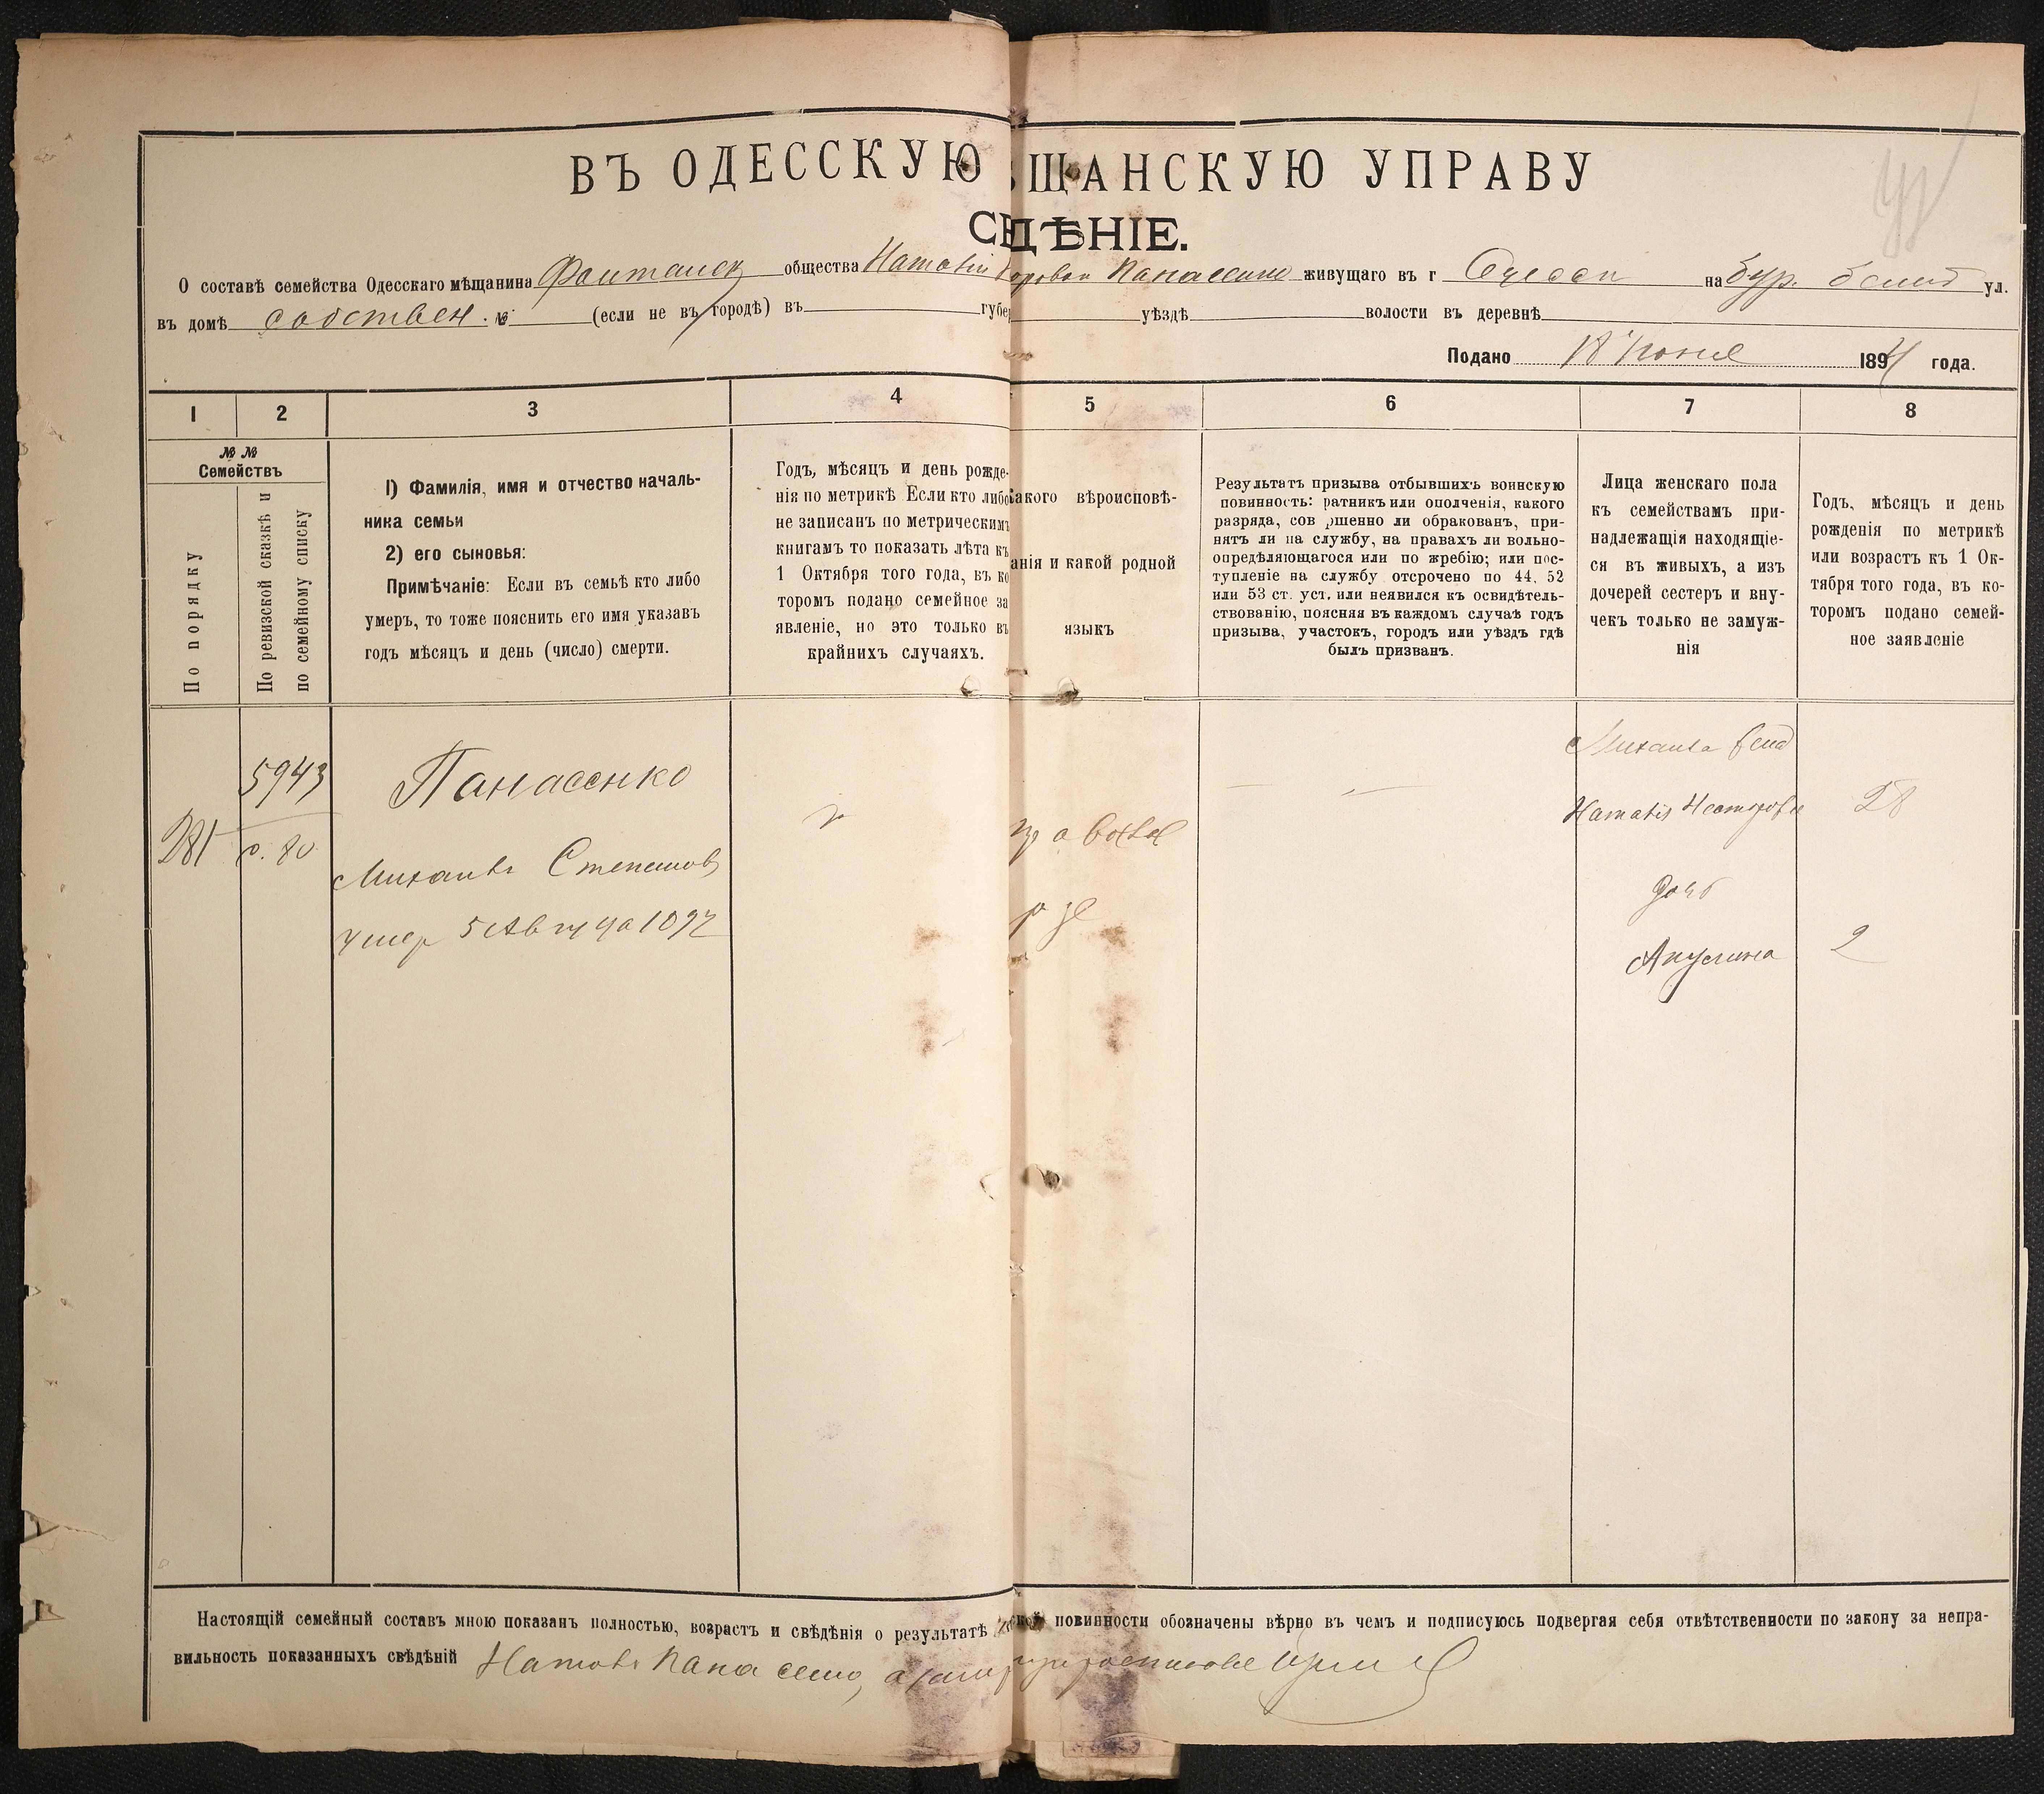 ВЪ ОДЕССКУЮ ЩАНСКУЮ УПРАВУ
СВѢДѢНІЕ.
О составѣ семейства Одесскаго мѣщанина Фонтанск общества живущаго въ г Одессѣ на ул.
въ домѣ собствен. № (если не въ городѣ) въ губер уѣздѣ волости въ деревнѣ
Подано 18 Іюня 1894 года.
1 2 3 4 5 6 7 8
№ №
Семействъ
По порядку
По ревизской сказкѣ и
по семейному списку
1) Фамилія, имя и отчество началь-
ника семьи
2) его сыновья:
Примѣчаніе: Если въ семьѣ кто либо
умеръ, то тоже пояснить его имя указавъ
годъ мѣсяцъ и день (число) смерти.
Годъ, мѣсяцъ и день рожде-
нія по метрикѣ Если кто либо
не записанъ по метрическимъ
книгамъ то показать лѣта къ
1 Октября того года, въ ко
торомъ подано семейное за
явленіе, но это только въ
крайнихъ случаяхъ.
акого вѣроисповѣ-
анія и какой родной
языкъ
Результатъ призыва отбывшихъ воинскую
повинность: ратникъ или ополченія, какого
разряда, сов ршенно ли обракованъ, при-
нятъ ли на службу, на правахъ ли вольно-
опредѣляющагося или по жребію; или пос-
тупленіе на службу отсрочено по 44, 52
или 53 ст. уст. или неявился къ освидѣтель-
ствованію, поясняя въ каждомъ случаѣ годъ
призыва, участокъ, городъ или уѣздъ гдѣ
былъ призванъ.
Лица женскаго пола
къ семействамъ при-
надлежащія находящіе-
ся въ живыхъ, а изъ
дочерей сестеръ и вну-
чекъ только не замуж-
нія
Годъ, мѣсяцъ и день
рожденія по метрикѣ
или возрастъ къ 1 Ок-
тября того года, въ ко-
торомъ подано семей-
ное заявленіе
281
5943
с. 80
Панасенко
Михаилъ Степановъ
умер 5 Августа 1892
Михаила
28
дочь
Акулина 2
Настоящій семейный составъ мною показанъ полностью, возрастъ и свѣдѣнія о результатѣ ской повинности обозначены вѣрно въ чемъ и подписуюсь подвергая себя отвѣтственности по закону за непра-
вильность показанныхъ свѣдѣній